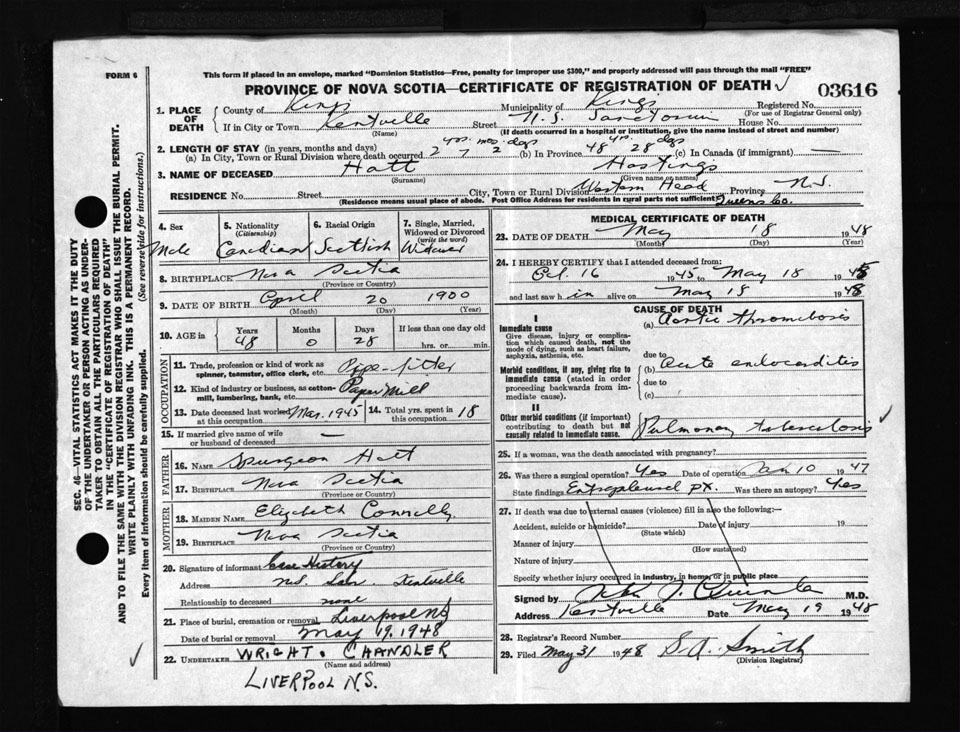 FORM 6
This form if placed in an envelope, marked "Dominion Statistics—Free, penalty for improper use $300," and properly addressed will pass through the mail "FREE"
PROVINCE OF NOVA SCOTIA—CERTIFICATE OF REGISTRATION OF DEATH
03616
SEC. 46—VITAL STATISTICS ACT MAKES IT THE DUTY
OF THE UNDERTAKER OR PERSON ACTING AS UNDER-
TAKER TO OBTAIN ALL THE PARTICULARS REQUIRED
IN THE "CERTIFICATE OF REGISTRATION OF DEATH"
AND TO FILE THE SAME WITH THE DIVISION REGISTRAR WHO SHALL ISSUE THE BURIAL PERMIT.
WRITE PLAINLY WITH UNFADING INK. THIS IS A PERMANENT RECORD.
Every item of information should be carefully supplied. (See reverse side for instructions.)
1. PLACE OF DEATH
County of Kings Municipality of Kings Registered No.
(For use of Registrar General only)
If in City or Town Kentville Street N.S. Sanatorium House No.
(Name) (If death occurred in a hospital or institution, give the name instead of street and number)
2. LENGTH OF STAY (in years, months and days) yrs. mos. days yrs. days
(a) In City, Town or Rural Division where death occurred 2 7 2 (b) In Province 48 28 (c) In Canada (if immigrant) —
3. NAME OF DECEASED Hatt Hastings
(Surname) (Given name or names)
RESIDENCE No. Street City, Town or Rural Division Western Head Province N.S.
(Residence means usual place of abode. Post Office Address for residents in rural parts not sufficient) Queens Co.
4. Sex
5. Nationality (Citizenship)
6. Racial Origin
7. Single, Married, Widowed or Divorced (write the word)
Male Canadian Scottish Widower
8. BIRTHPLACE Nova Scotia
(Province or Country)
9. DATE OF BIRTH April 20 1900
(Month) (Day) (Year)
10. AGE in Years Months Days If less than one day old
48 0 28 hrs. or min.
OCCUPATION
11. Trade, profession or kind of work as spinner, teamster, office clerk, etc. Pipe-fitter
12. Kind of industry or business, as cotton-mill, lumbering, bank, etc. Paper Mill
13. Date deceased last worked at this occupation Mar. 1945 14. Total yrs. spent in 18
15. If married give name of wife or husband of deceased —
FATHER
16. NAME Spurgeon Hatt
17. BIRTHPLACE Nova Scotia
MOTHER
18. MAIDEN NAME Elizabeth Connelly
19. BIRTHPLACE Nova Scotia
(Province or Country)
20. Signature of informant Case History
Address N.S. San. Kentville
Relationship to deceased none
21. Place of burial, cremation or removal Liverpool NS
Date of burial or removal May 19, 1948
22. UNDERTAKER WRIGHT. CHANDLER
(Name and address)
LIVERPOOL N.S.
MEDICAL CERTIFICATE OF DEATH
23. DATE OF DEATH May 18 1948
(Month) (Day) (Year)
24. I HEREBY CERTIFY that I attended deceased from:
Oct. 16 1945 to May 18 1948
and last saw him alive on May 18 1948
CAUSE OF DEATH
I
Immediate cause (a) Aortic thrombosis
Give disease, injury or complication which caused death, not the mode of dying, such as heart failure, asphyxia, asthenia, etc.
due to
Morbid conditions, if any, giving rise to immediate cause (stated in order proceeding backwards from immediate cause).
(b) Acute endocarditis
due to
(c)
II
Other morbid conditions (if important) contributing to death but not causally related to immediate cause. Pulmonary tuberculosis
25. If a woman, was the death associated with pregnancy?
26. Was there a surgical operation? Yes Date of operation Jan 10 1947
State findings Extrapleural px. Was there an autopsy? Yes
27. If death was due to external causes (violence) fill in also the following:—
Accident, suicide or homicide? Date of injury 19
(State which)
Manner of injury
(How sustained)
Nature of injury
Specify whether injury occurred in industry, in home, or in public place
Signed by M.D.
Address Kentville Date May 19 1948
28. Registrar's Record Number
29. Filed May 31 1948 S.A. Smith
(Division Registrar)